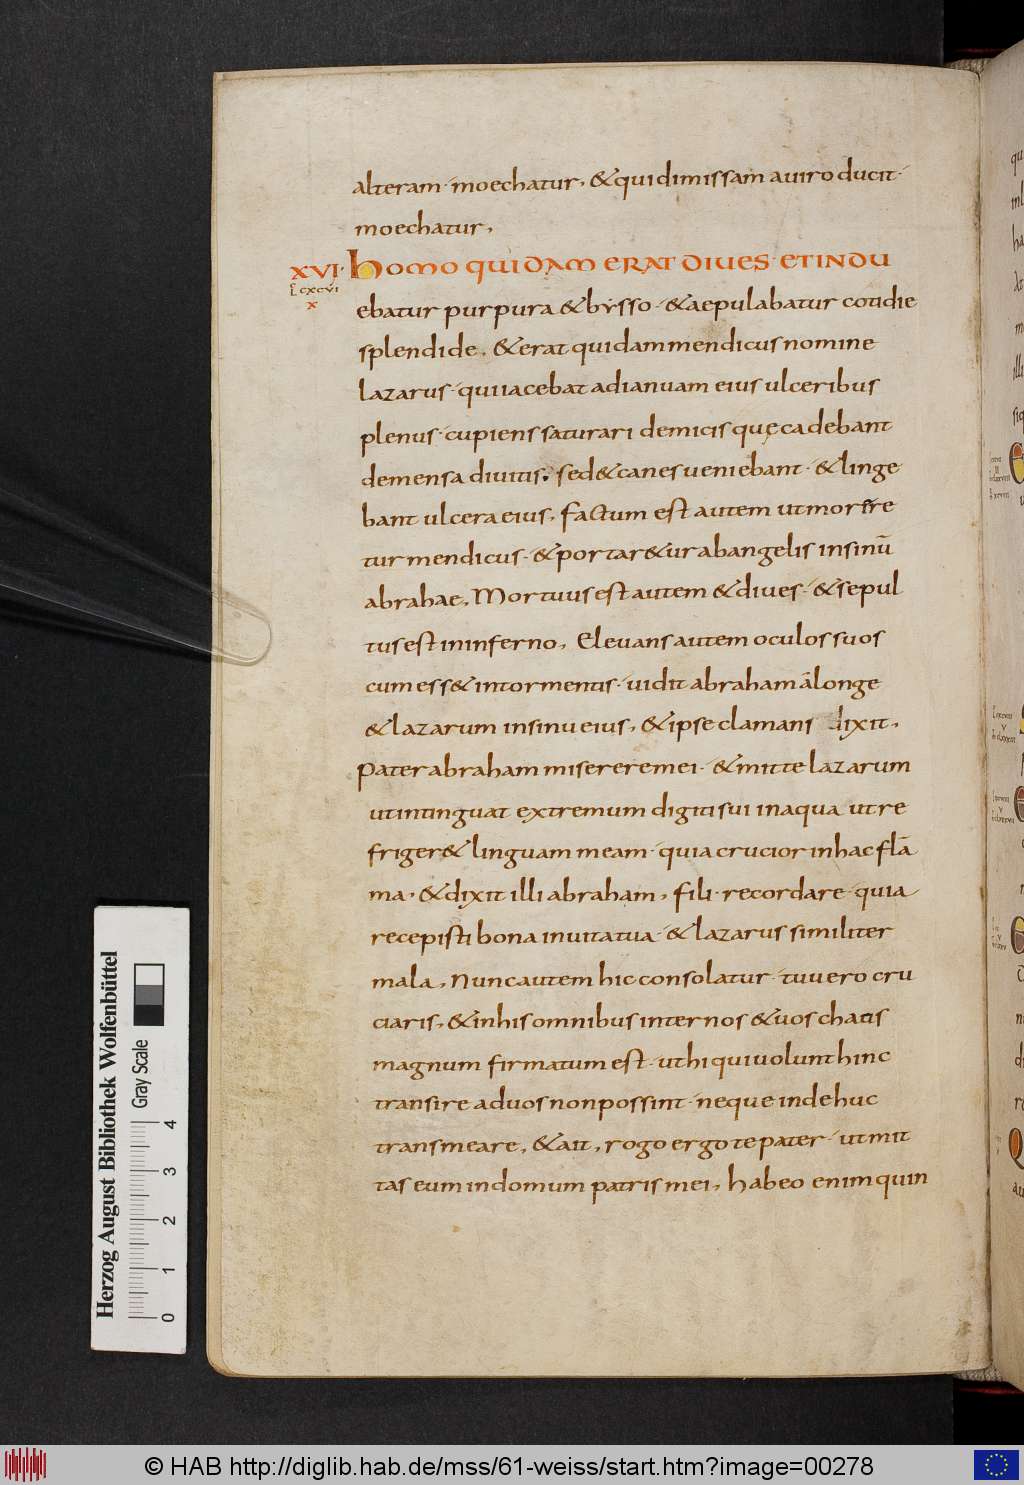 alteram · moechatur, & qui dimissam a viro ducit ·
moechatur,
XVI · homo quidam erat dives · et indu
L cxcvi
x
ebatur purpura & bysso · & aepulabatur cotidie
splendide, & erat quidam mendicus nomine
lazarus · qui iacebat ad ianuam eius ulceribus
plenus · cupiens saturari de micis quę cadebant
de mensa divitis. sed & canes veniebant · & linge
bant ulcera eius, factum est autem ut morire
tur mendicus · & portar&ur ab angelis in sinū
abrahae, Mortuus est autem & dives · & sepul
tus est in inferno, Elevans autem oculos suos
cum ess& in tormentis · vidit abraham a longe
& lazarum in sinu eius, & ipse clamans dixit,
Pater abraham miserere mei · & mitte lazarum
ut intinguat extremum digiti sui in aqua ut re
friger& linguam meam · quia crucior in hac flā
ma · & dixit illi abraham, fili · recordare · quia
recepisti bona in vita tua · & lazarus similiter
mala, Nunc autem hic consolatur · tu vero cru
ciaris, & in his omnibus inter nos & vos chaus
magnum firmatum est · ut hi qui volunt hinc
transire ad vos non possint · neque inde huc
transmeare, & ait, rogo ergo te pater · ut mit
tas eum in domum patris mei, habeo enim quin
Herzog August Bibliothek Wolfenbüttel
Gray Scale
0 1 2 3 4
© HAB http://diglib.hab.de/mss/61-weiss/start.htm?image=00278